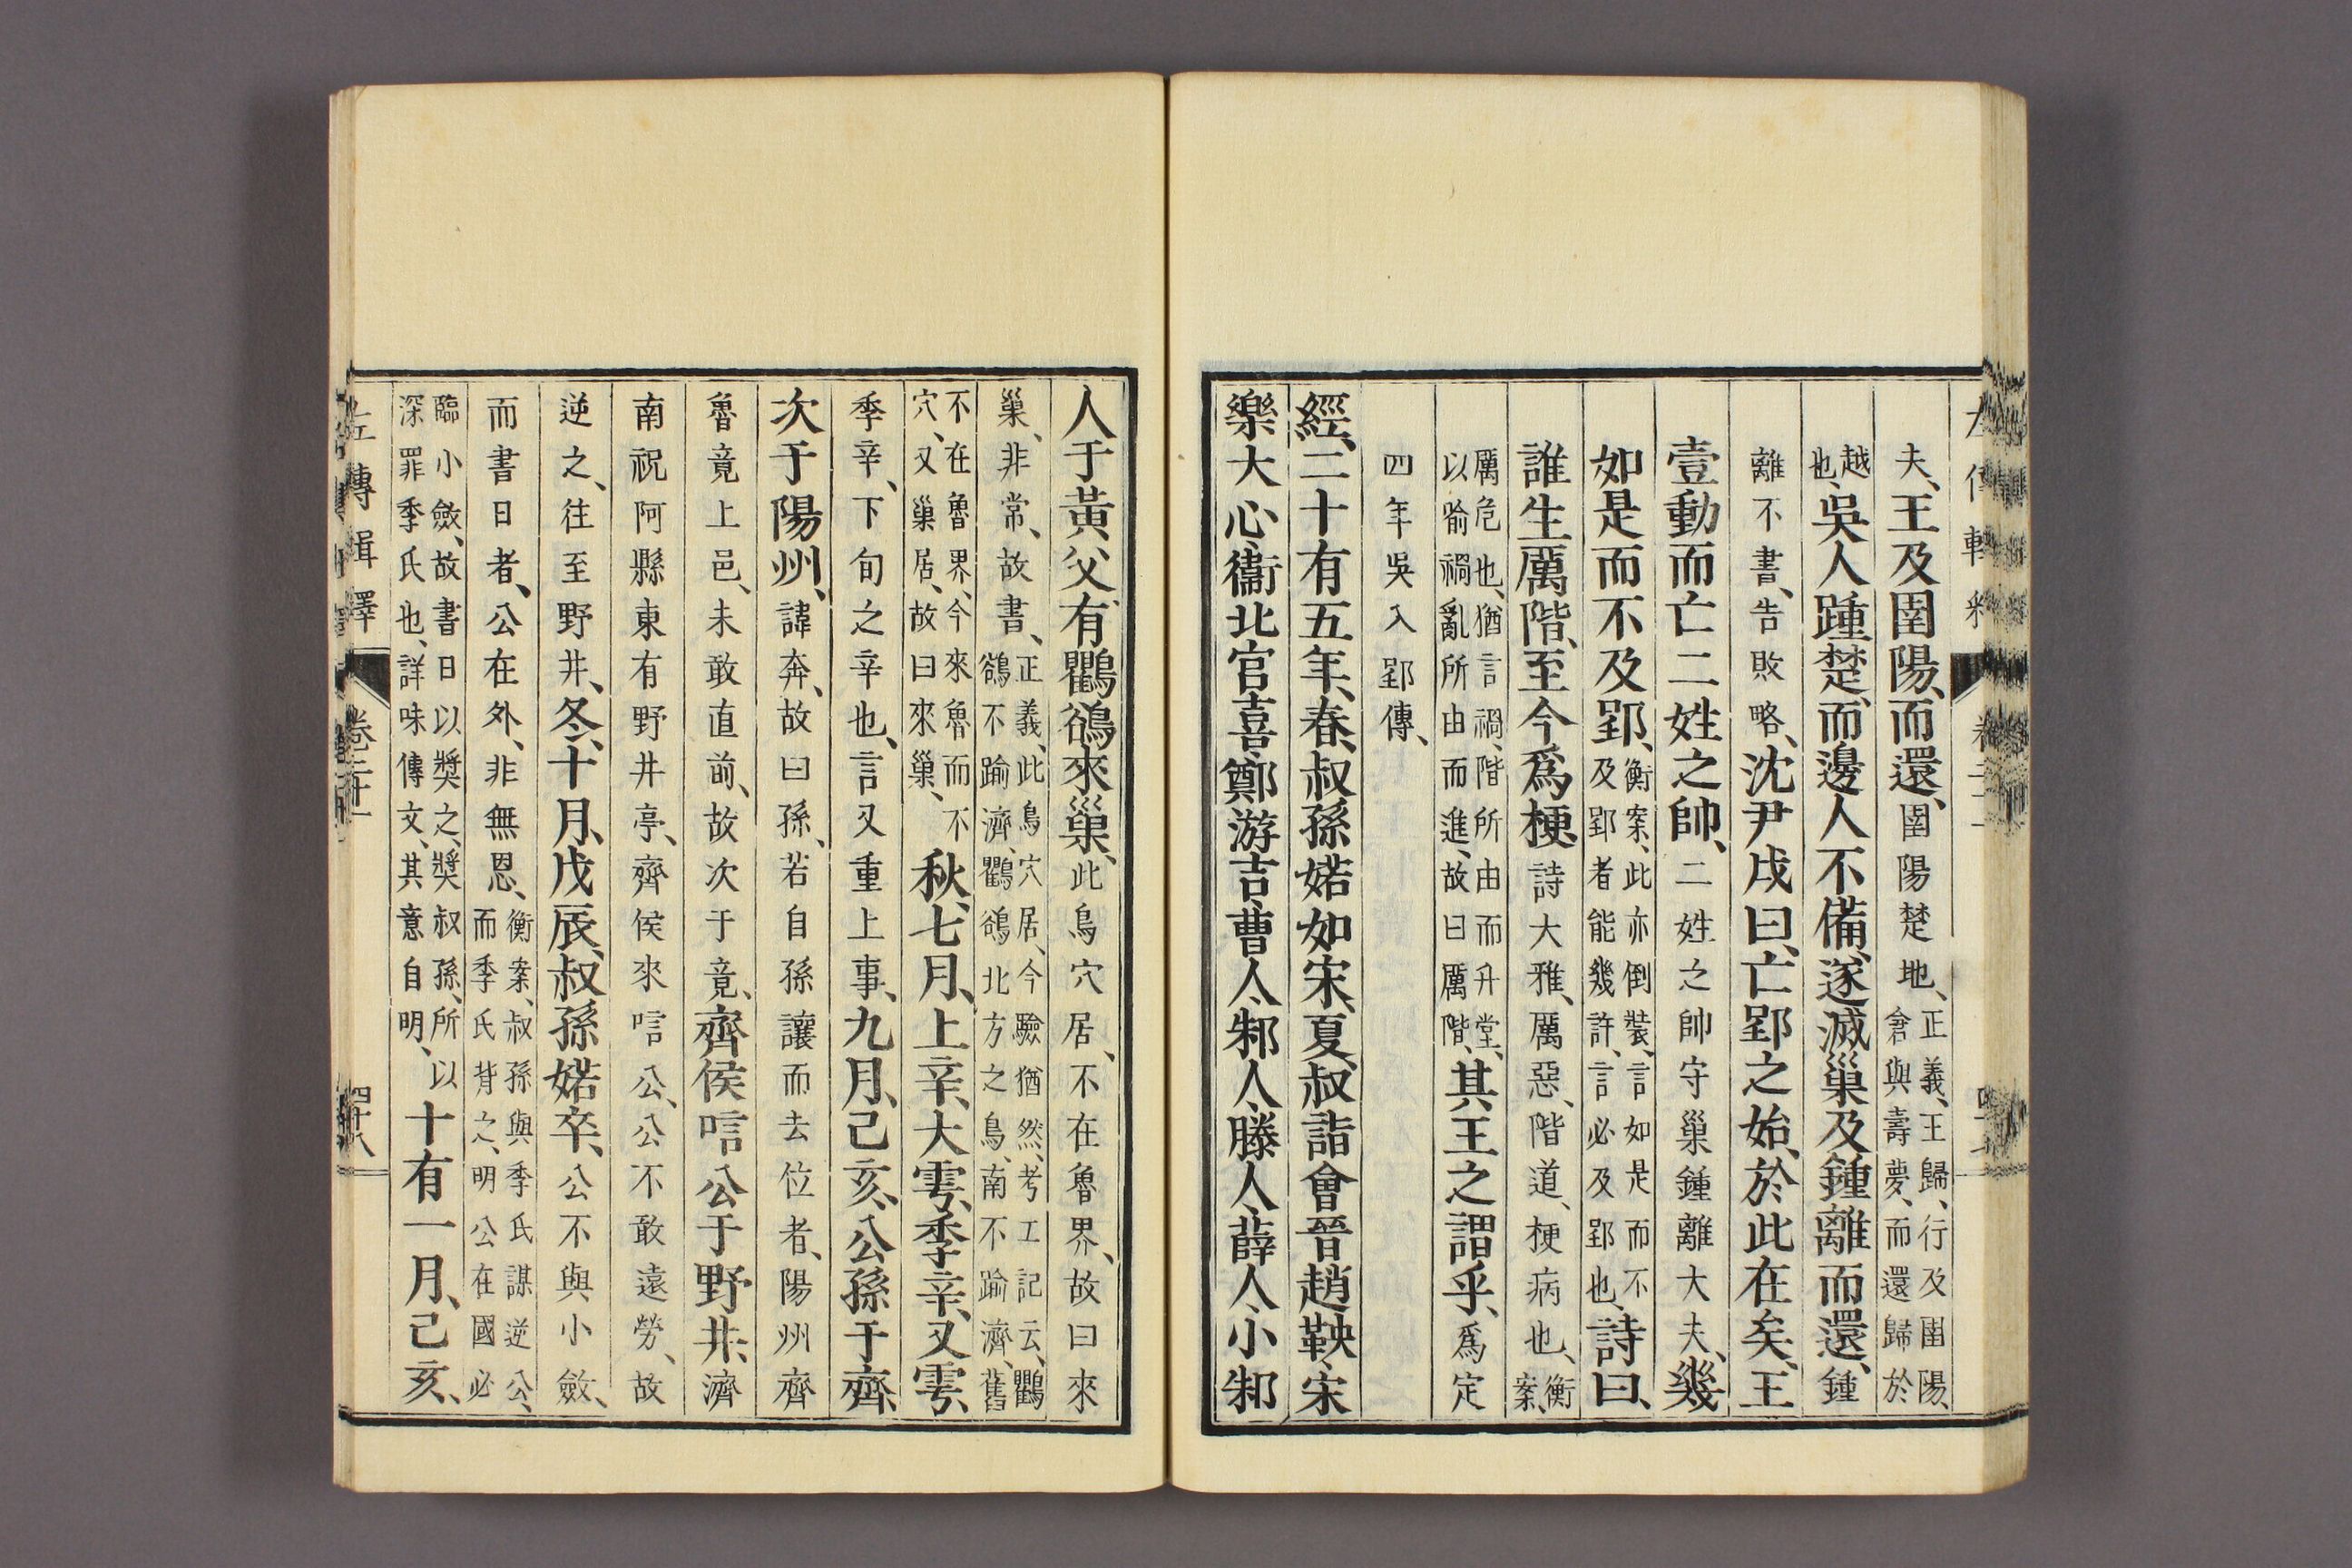 夫、王及圉陽、而還、圉陽楚地、正義、王歸、行及圉陽、倉與壽夢、而還歸於
越也、吳人踵楚、而邊人不備、遂滅巢及鍾離而還、鍾
離不書、告敗略、沈尹戌曰、亡郢之始、於此在矣、王
壹動而亡二姓之帥、二姓之帥守巢鍾離大夫、幾
如是而不及郢、衡案、此亦倒裝、言如是而不及郢者能幾許、言必及郢也、詩曰、
誰生厲階、至今爲梗、詩大雅、厲惡、階道、梗病也、衡案、
厲危也、猶言禍、階所由而升堂、以喻禍亂所由而進、故曰厲階、其王之謂乎、爲定
四年吳入郢傳、
經、二十有五年、春、叔孫婼如宋、夏、叔詣會晉趙鞅、宋
樂大心、衞北宮喜、鄭游吉、曹人、邾人、滕人、薛人、小邾
人于黃父、有鸜鵒來巢、此鳥穴居、不在魯界、故曰來
巢、非常、故書、正義、此鳥穴居、今驗猶然、考工記云、鸜鵒不踰濟、鸜鵒北方之鳥、南不踰濟、舊
不在魯界、今來魯而不穴、又巢居、故曰來巢、秋、七月、上辛、大雩、季辛、又雩、
季辛、下旬之辛也、言又重上事、九月、己亥、公孫于齊、
次于陽州、諱奔、故曰孫、若自孫讓而去位者、陽州齊
魯竟上邑、未敢直前、故次于竟、齊侯唁公于野井、濟
南祝阿縣東有野井亭、齊侯來唁公、公不敢遠勞、故
逆之、往至野井、冬、十月、戊辰、叔孫婼卒、公不與小斂、
而書日者、公在外、非無恩、衡案、叔孫與季氏謀逆公、而季氏背之、明公在國必
臨小斂、故書日以獎之、獎叔孫、所以深罪季氏也、詳味傳文、其意自明、十有一月、己亥、
左傳輯釋 卷二十一 四十八